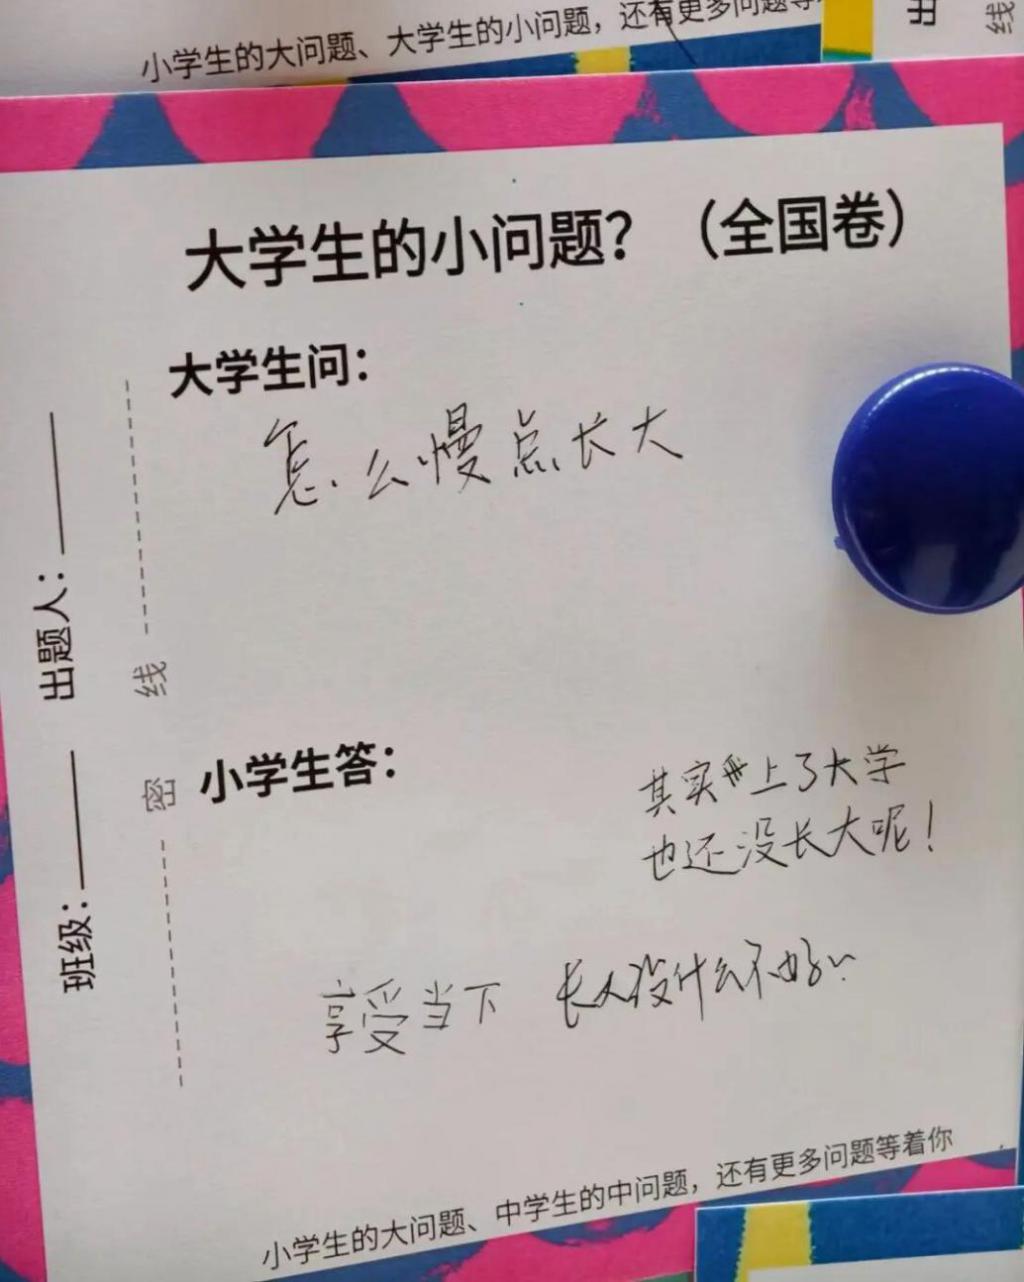 小学生的大问题、大学生的小问题，还有更多问题等
线
大学生的小问题？（全国卷）
大学生问：
怎么慢点长大
出题人：
线
密
班级：
小学生答：
其实上了大学
也还没长大呢！
享受当下
长大没什么不好
小学生的大问题、中学生的中问题，还有更多问题等着你